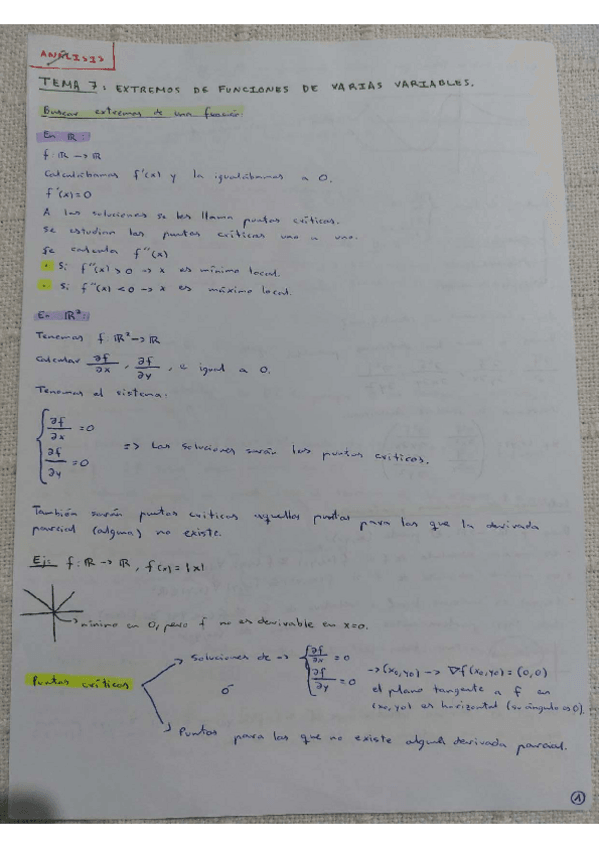 ANÁLISIS
TEMA 7: EXTREMOS DE FUNCIONES DE VARIAS VARIABLES.
Buscar extremos de una función:
En ℝ:
f: ℝ -> ℝ
Calculábamos f'(x) y la igualábamos a 0.
f'(x)=0
A las soluciones se les llama puntos críticos.
Se estudian los puntos críticos uno a uno.
Se calcula f''(x)
· Si f''(x) > 0 -> x es mínimo local.
· Si f''(x) < 0 -> x es máximo local.
En ℝ²:
Tenemos f: ℝ² -> ℝ
Calcular ∂f/∂x, ∂f/∂y, e igual a 0.
Tenemos el sistema:
{ ∂f/∂x = 0
∂f/∂y = 0 => Las soluciones serán los puntos críticos.
También serán puntos críticos aquellos puntos para los que la derivada
parcial (alguna) no existe.
Ej: f: ℝ -> ℝ, f(x) = |x|
mínimo en 0, pero f no es derivable en x=0.
Puntos críticos
Soluciones de -> { ∂f/∂x = 0
∂f/∂y = 0 -> (x0,y0) -> ∇f(x0,y0) = (0,0)
el plano tangente a f en
(x0,y0) es horizontal (su ángulo es 0).
ó
Puntos para los que no existe alguna derivada parcial.
1